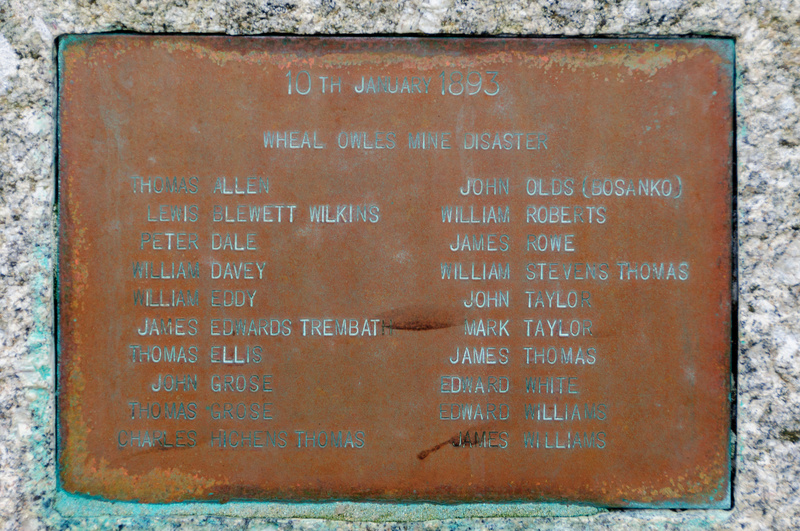 10TH JANUARY 1893
WHEAL OWLES MINE DISASTER
THOMAS ALLEN
LEWIS BLEWETT WILKINS
PETER DALE
WILLIAM DAVEY
WILLIAM EDDY
JAMES EDWARDS TREMBATH
THOMAS ELLIS
JOHN GROSE
THOMAS GROSE
CHARLES HICHENS THOMAS
JOHN OLDS (BOSANKO)
WILLIAM ROBERTS
JAMES ROWE
WILLIAM STEVENS THOMAS
JOHN TAYLOR
MARK TAYLOR
JAMES THOMAS
EDWARD WHITE
EDWARD WILLIAMS
JAMES WILLIAMS